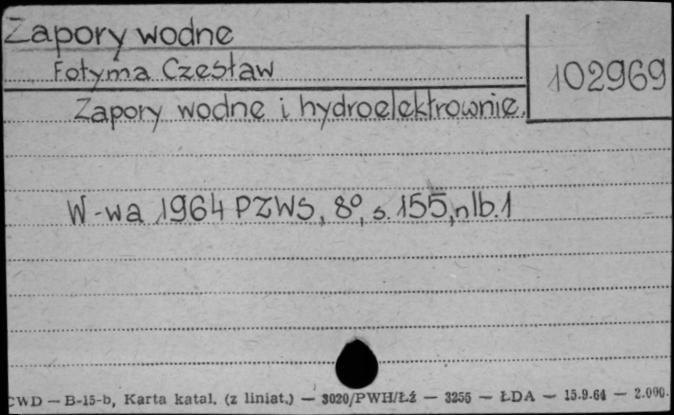 Zapory wodne
Fotyma Czesław
102969
Zapory wodne i hydroelektrownie.
W-wa 1964 PZWS, 8°, s. 155, nlb. 1
CWD — B-15-b, Karta katal. (z liniat.) — 3020/PWH/Łź — 3255 — ŁDA — 15.9.64 — 2.000.